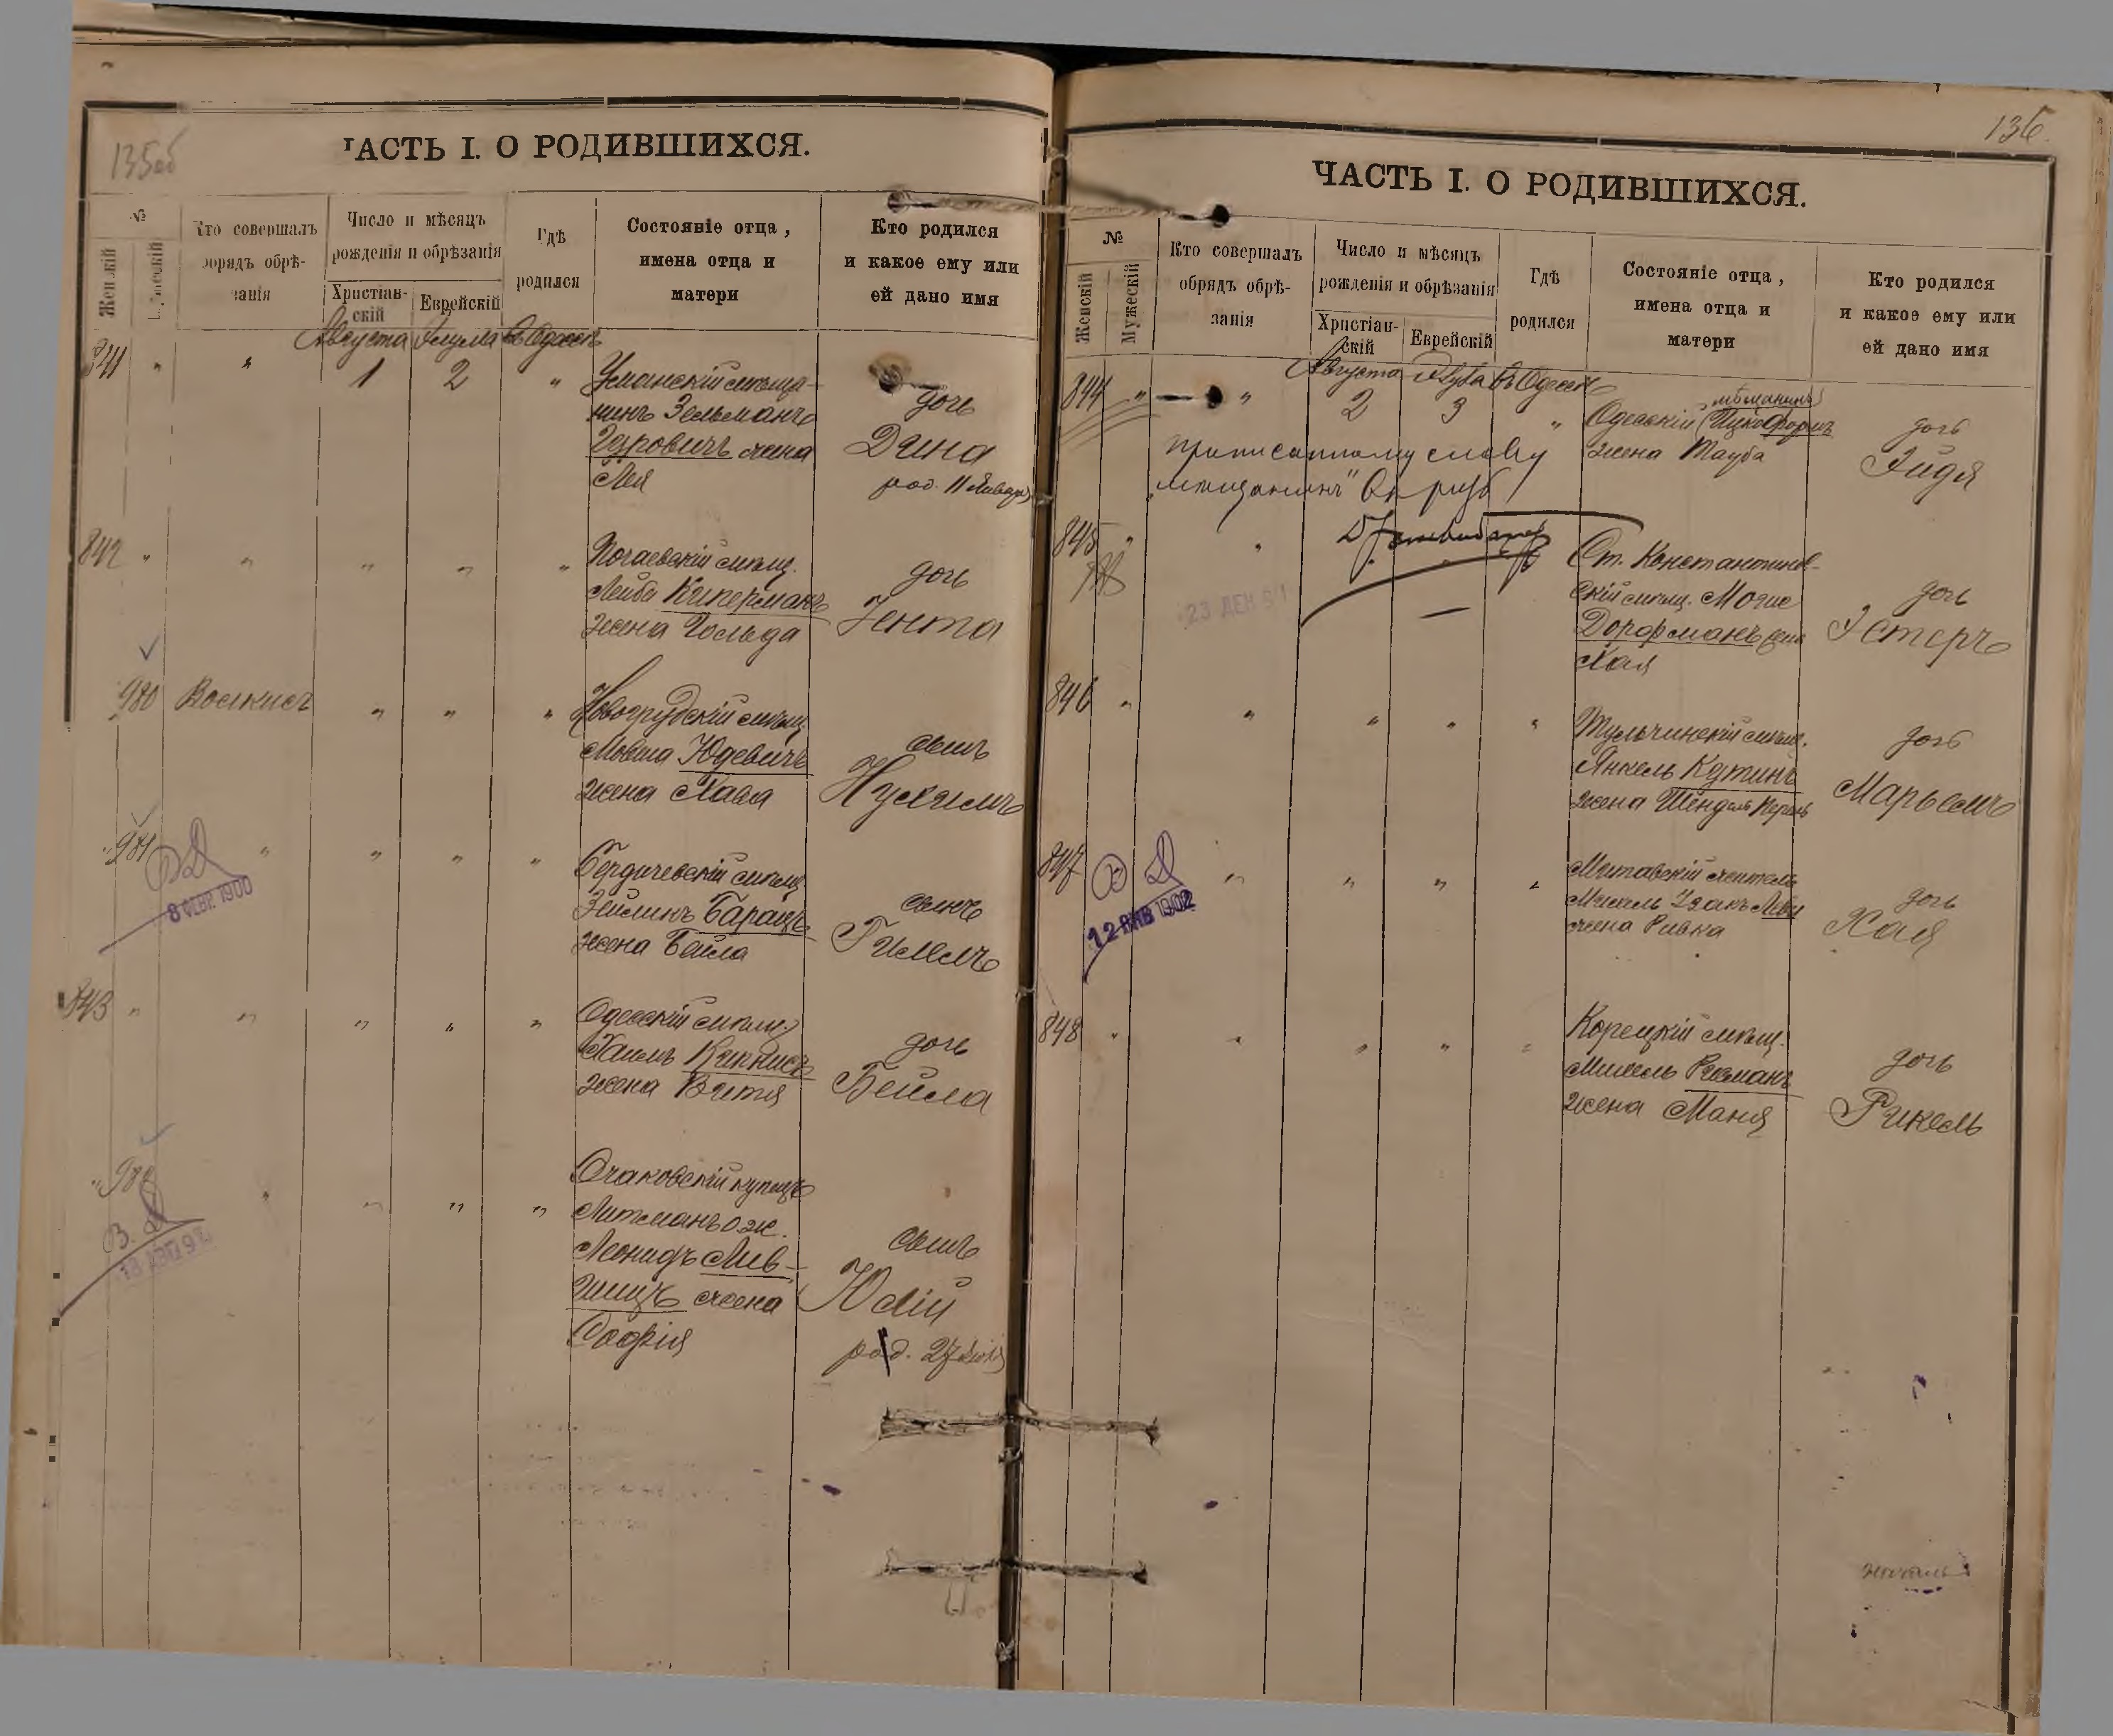 135об
ЧАСТЬ I. О РОДИВШИХСЯ.
№
Женскій
Мужескій
Кто совершалъ обрядъ обрѣ-
занія
Число и мѣсяцъ
рожденія и обрѣзанія
Христіан-
скій
Еврейскій
Гдѣ
родился
Состояніе отца,
имена отца и
матери
Кто родился
и какое ему или
ей дано имя
Августа Элула Въ Одессѣ
841 " " 1 2 "
Уманскій мѣща-
нинъ Зельманъ
жена
Лея
дочь
Дина
род. 11 Января
842 " " " " "
Почаевскій мѣщ.
Лейба Киперманъ
жена Гольда
дочь
Ента
980 " " "
Новогрудскій мѣщ.
Мовша Юдевичъ
жена Хава
сынъ
Нухимъ
" 981 " " " "
8 ФЕВР. 1900
Бердичевскій мѣщ.
Барацъ
жена Бейла
сынъ
843 " " " " "
Одесскій мѣщ.
Хаимъ
жена
дочь
Бейла
" 982 " " " "
Очаковскій купецъ
Литманъ онж.
Леонидъ Лив-
шицъ жена
Софія
сынъ
Юлій
род. 27 Іюля
136.
ЧАСТЬ I. О РОДИВШИХСЯ.
№
Женскій
Мужескій
Кто совершалъ
обрядъ обрѣ-
занія
Число и мѣсяцъ
рожденія и обрѣзанія
Христіан-
скій
Еврейскій
Гдѣ
родился
Состояніе отца,
имена отца и
матери
Кто родился
и какое ему или
ей дано имя
Августа Элула Въ Одессѣ
844 " " 2 3 "
мѣщанинъ
Одесскій Ицко
жена Тауба
дочь
Эйдя
приписанному слову
"мѣщанинъ" вѣрить
845 " "
Ст. Константинов-
скій мѣщ. Мойше
Дорфманъ жена
Хая
дочь
Эстеръ
846 " " " " "
Тульчинскій мѣщ.
Янкель
жена Шендель Перель
дочь
Марьемъ
847 " " " "
12 ЯНВ 1902
Митавскій житель
Ицакъ Леви
жена Ривка
дочь
Хая
848 " " " " "
Корецкій мѣщ.
Михель
жена Маня
дочь
Рикель